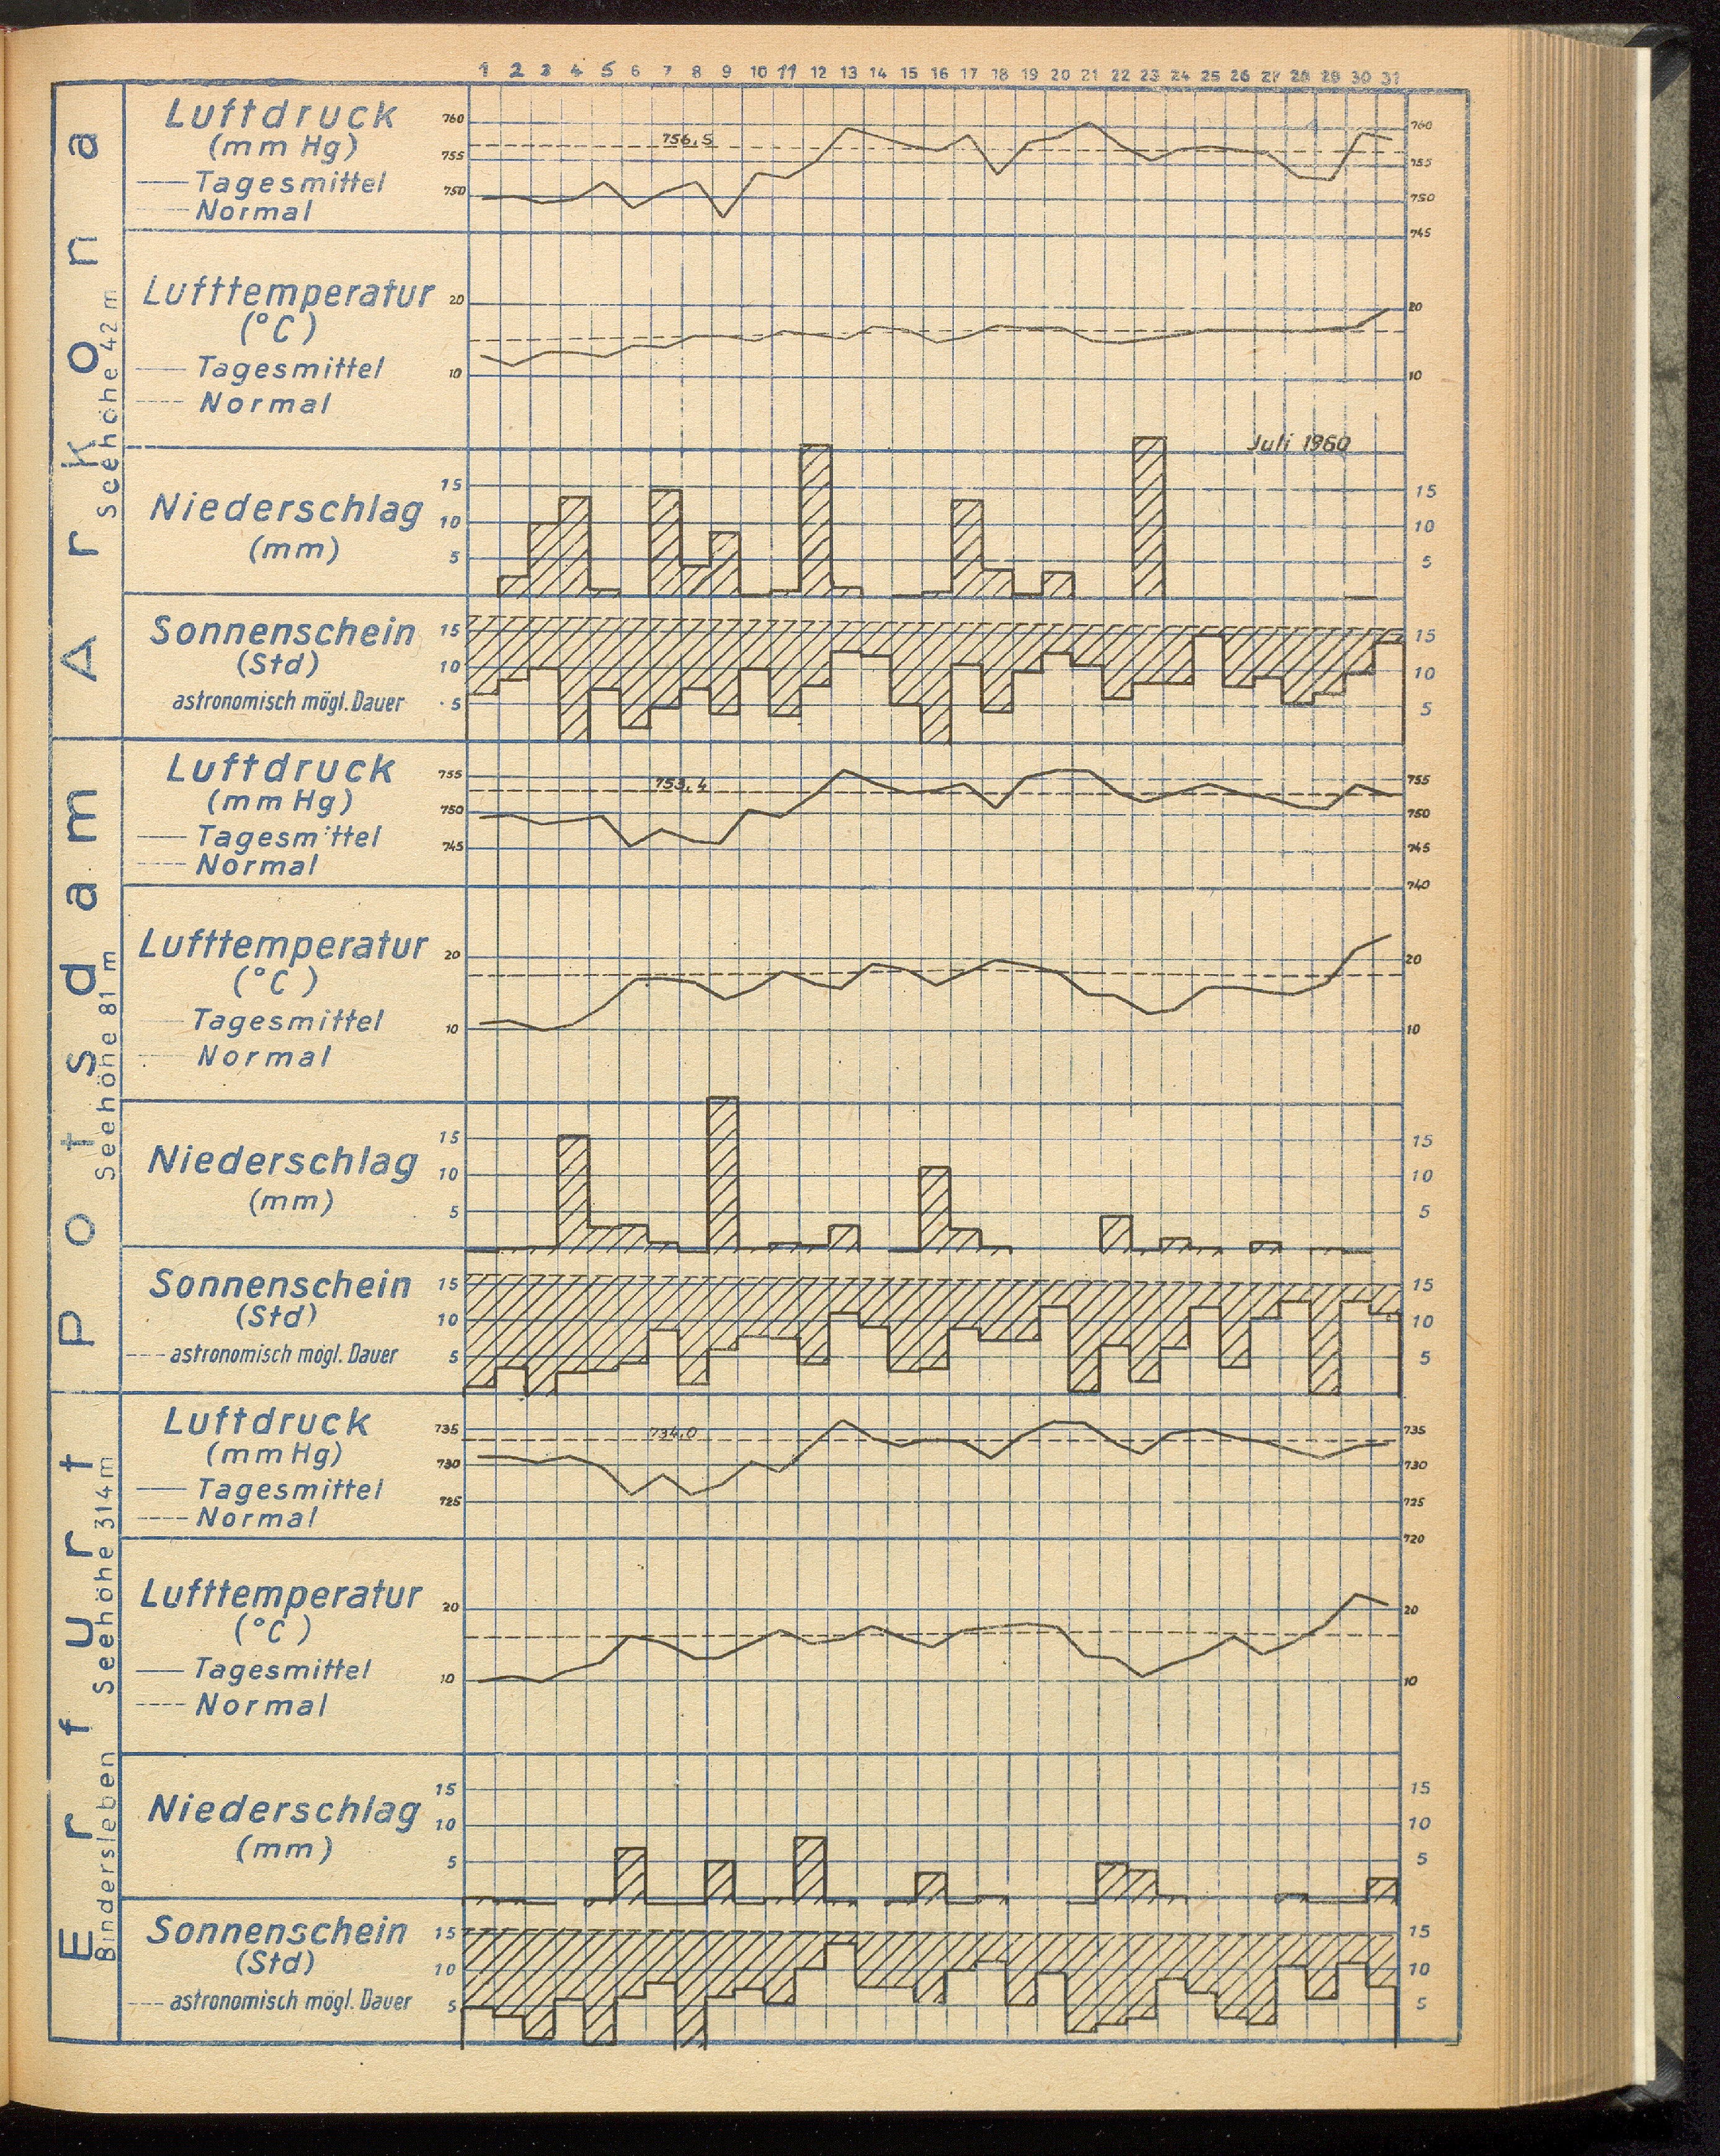 1 2 3 4 5 6 7 8 9 10 11 12 13 14 15 16 17 18 19 20 21 22 23 24 25 26 27 28 29 30 31
Arkona
Seehöhe 42 m
Luftdruck
(mm Hg)
Tagesmittel
Normal
760
755
750
756,5
760
755
750
745
Lufttemperatur
(°C)
Tagesmittel
Normal
20
10
20
10
Juli 1960
Niederschlag
(mm)
15
10
5
15
10
5
Sonnenschein
(Std)
astronomisch mögl. Dauer
15
10
5
15
10
5
Potsdam
Seehöhe 81 m
Luftdruck
(mm Hg)
Tagesmittel
Normal
755
750
745
753,4
755
750
745
740
Lufttemperatur
(°C)
Tagesmittel
Normal
20
10
20
10
Niederschlag
(mm)
15
10
5
15
10
5
Sonnenschein
(Std)
astronomisch mögl. Dauer
15
10
5
15
10
5
Erfurt
Bindersleben Seehöhe 314 m
Luftdruck
(mm Hg)
Tagesmittel
Normal
735
730
725
734,0
735
730
725
720
Lufttemperatur
(°C)
Tagesmittel
Normal
20
10
20
10
Niederschlag
(mm)
15
10
5
15
10
5
Sonnenschein
(Std)
astronomisch mögl. Dauer
15
10
5
15
10
5